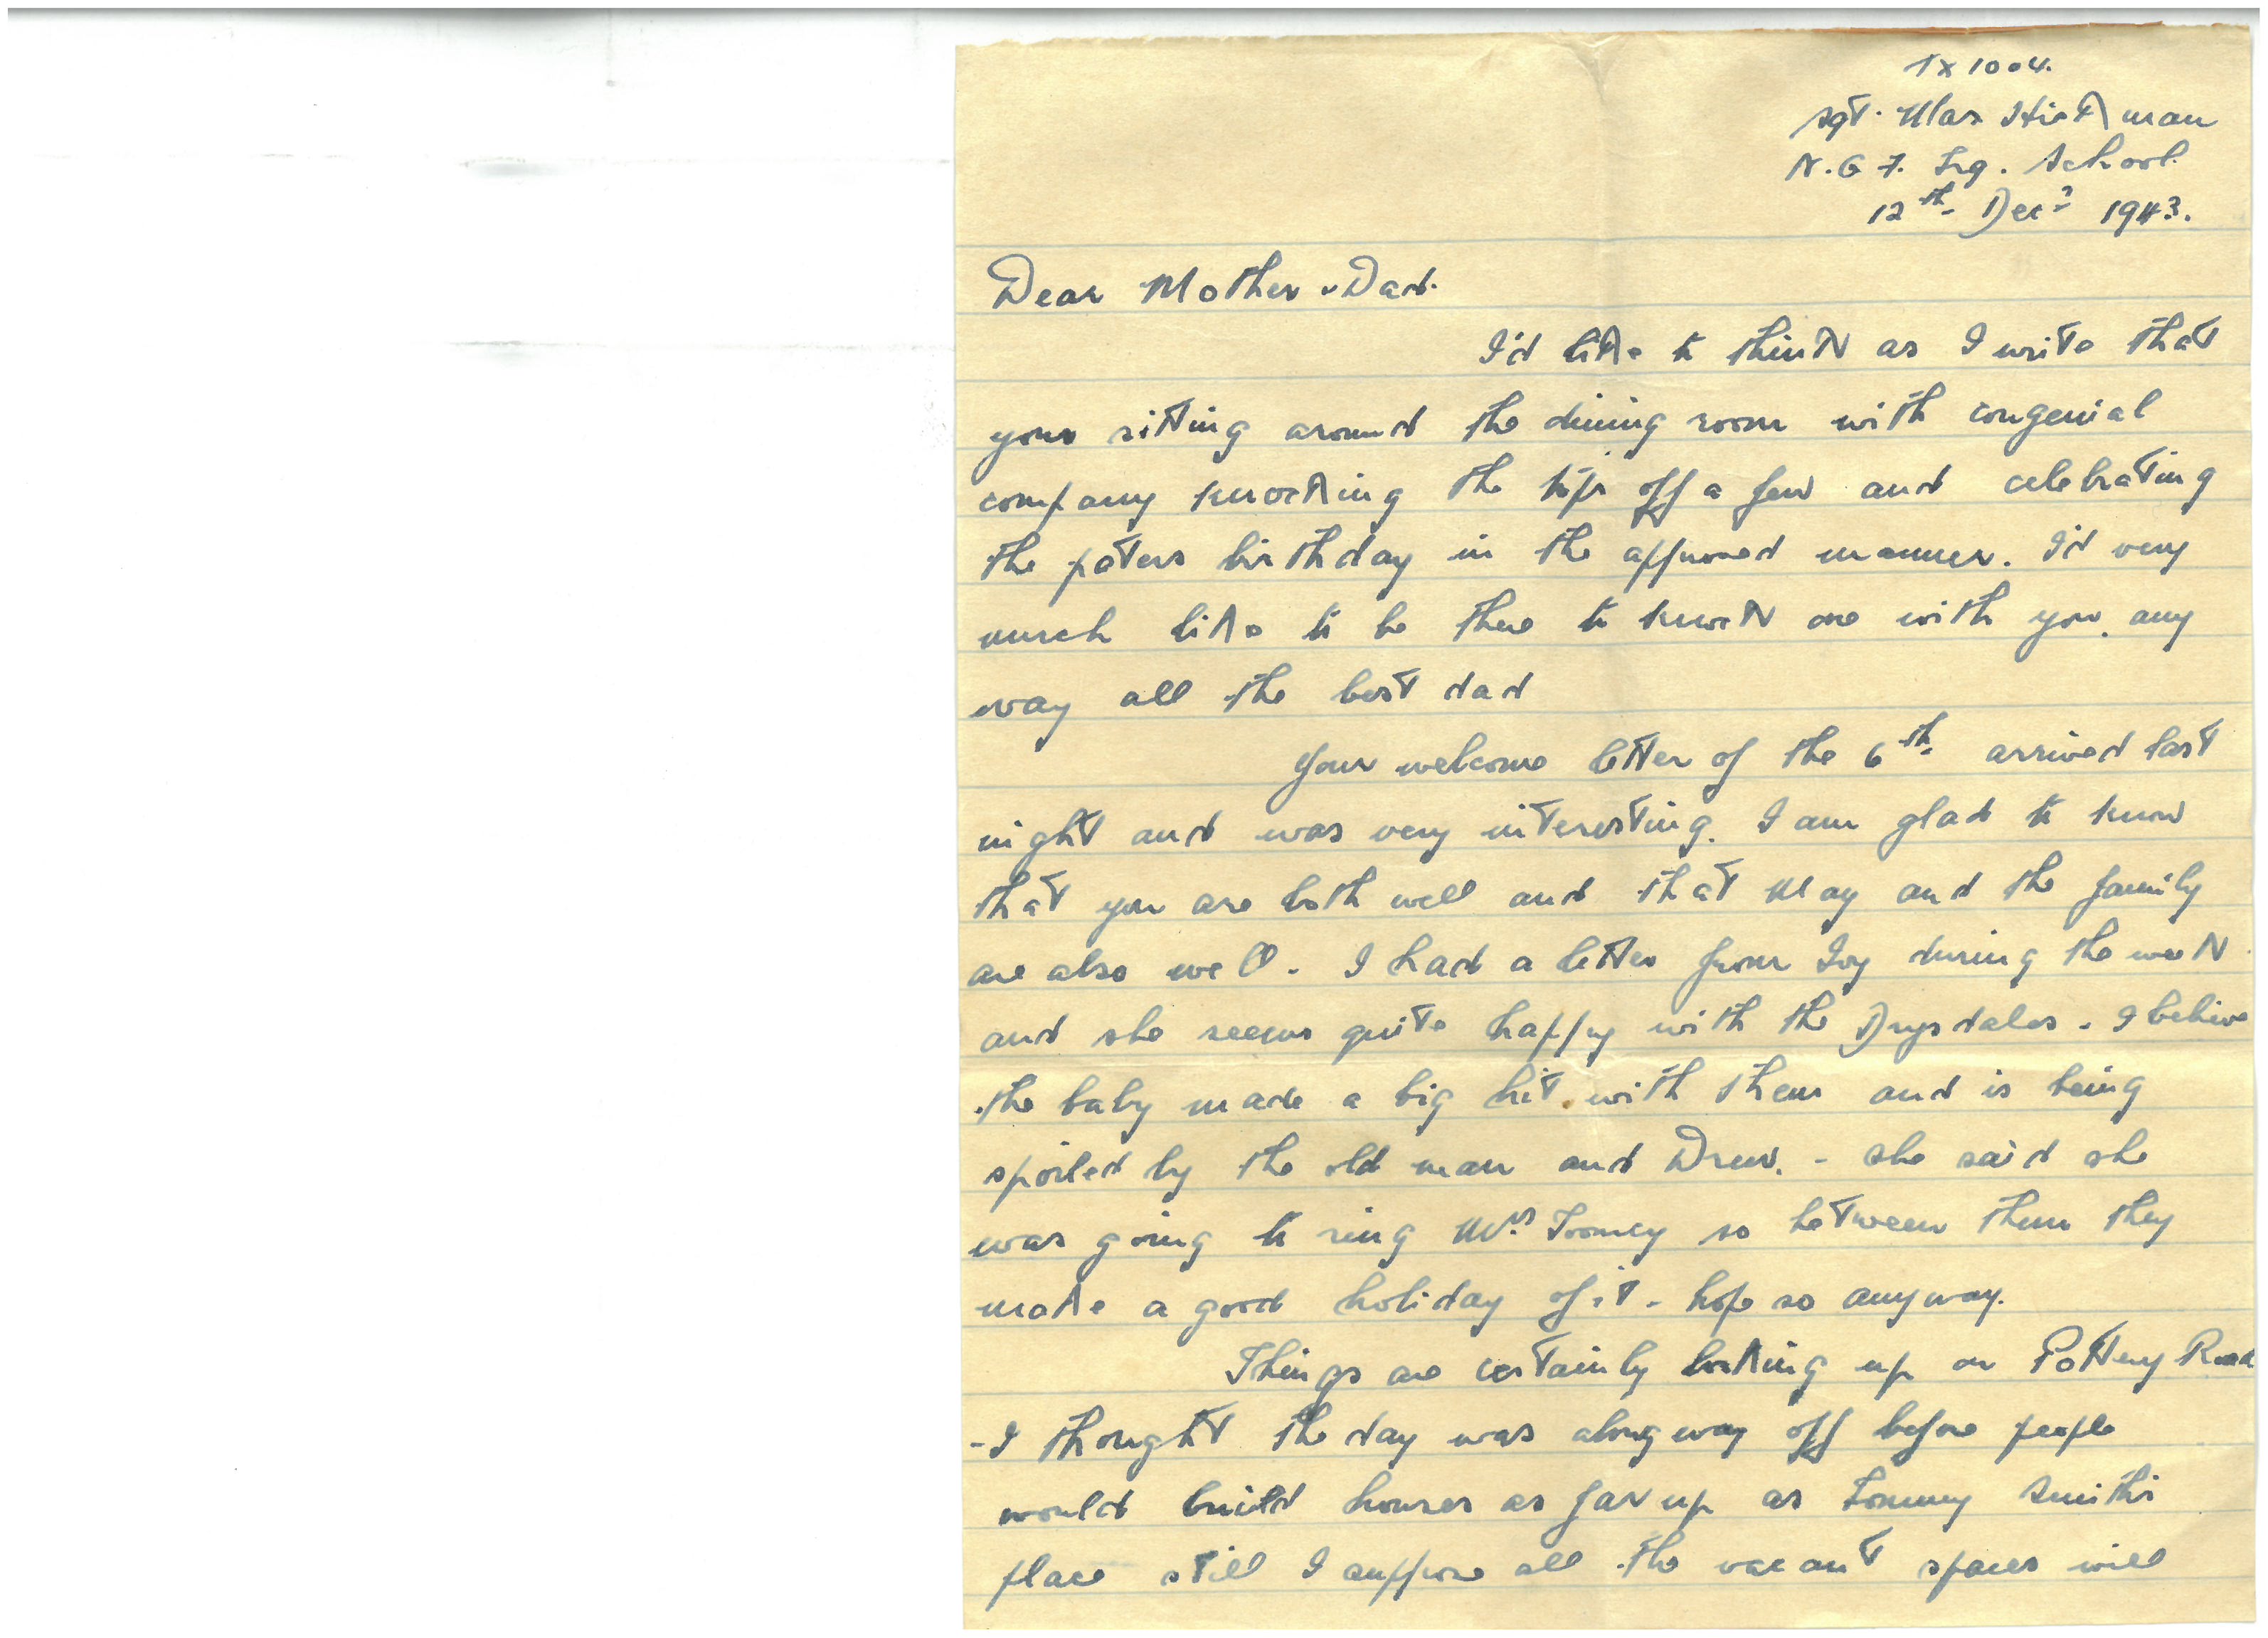 TX 1004.
Sgt. Max Hickman
N.G.F. Trg. School.
12th Dec? 1943.
Dear Mother & Dad.
I'd like to think as I write that
your sitting around the dining room with congenial
company knocking the tops off a few and celebrating
the paters birthday in the approved manner. I'd very
much like to be there to knock one with you. any
way all the best dad
Your welcome letter of the 6th arrived last
night and was very interesting. I am glad to know
that you are both well and that May and the family
are also well. I had a letter from Ivy during the week
and she seems quite happy with the Drysdales. I believe
the baby made a big hit with them and is being
spoiled by the old man and Drew. - she said she
was going to ring Mrs Toomey so between them they
make a good holiday of it - hope so anyway.
Things are certainly looking up on Pottery Road
- I thought the day was along way off before people
would build houses as far up as Tommy Smiths
place still I suppose all the vacant spaces will